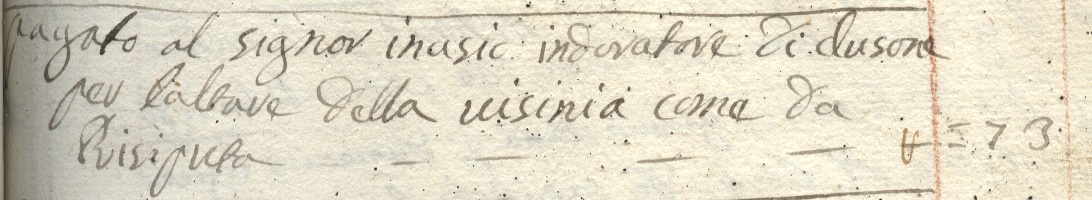 pagato al signor inasio indoratore di clusone
per laltare della uisinia come da
Risiputa — — — — = 73